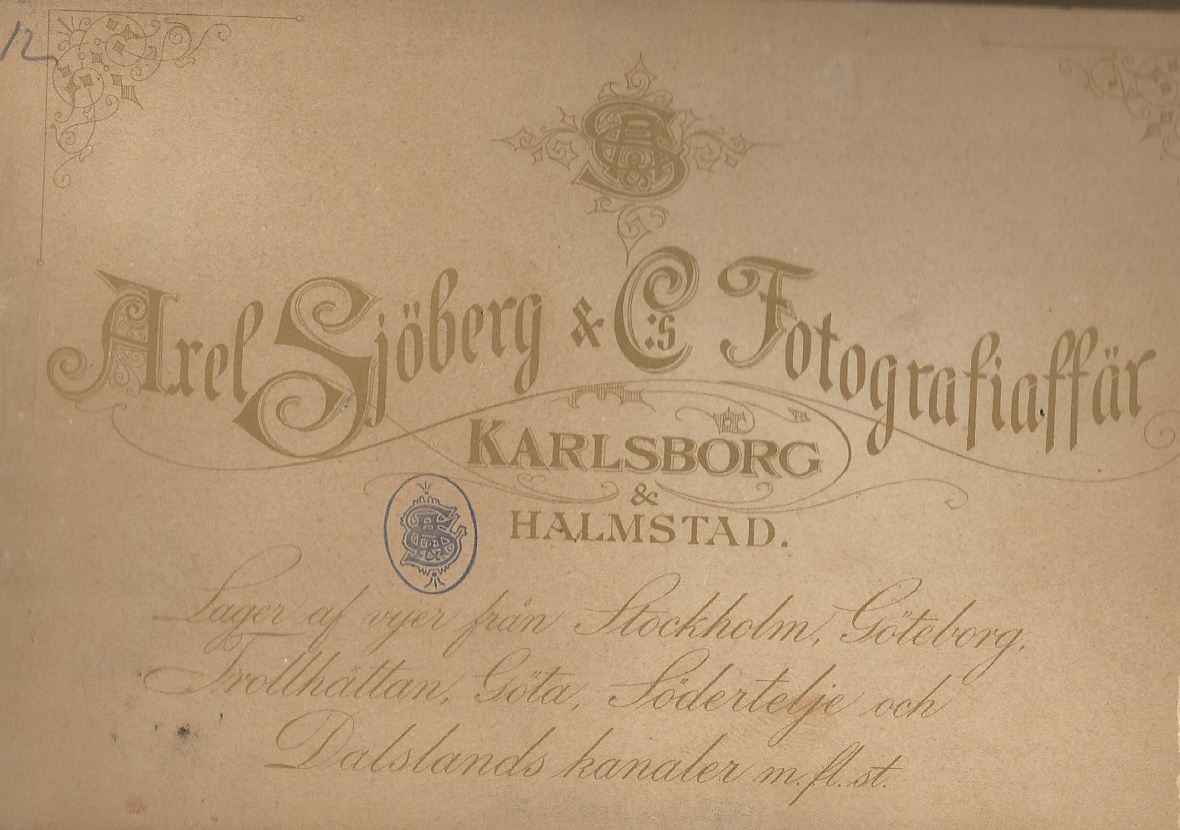 12
Axel Sjöberg & C:s Fotografiaffär
KARLSBORG
&
HALMSTAD.
Lager af vyer från Stockholm, Göteborg,
Trollhättan, Göta, Södertelje och
Dalslands kanaler m. fl. st.